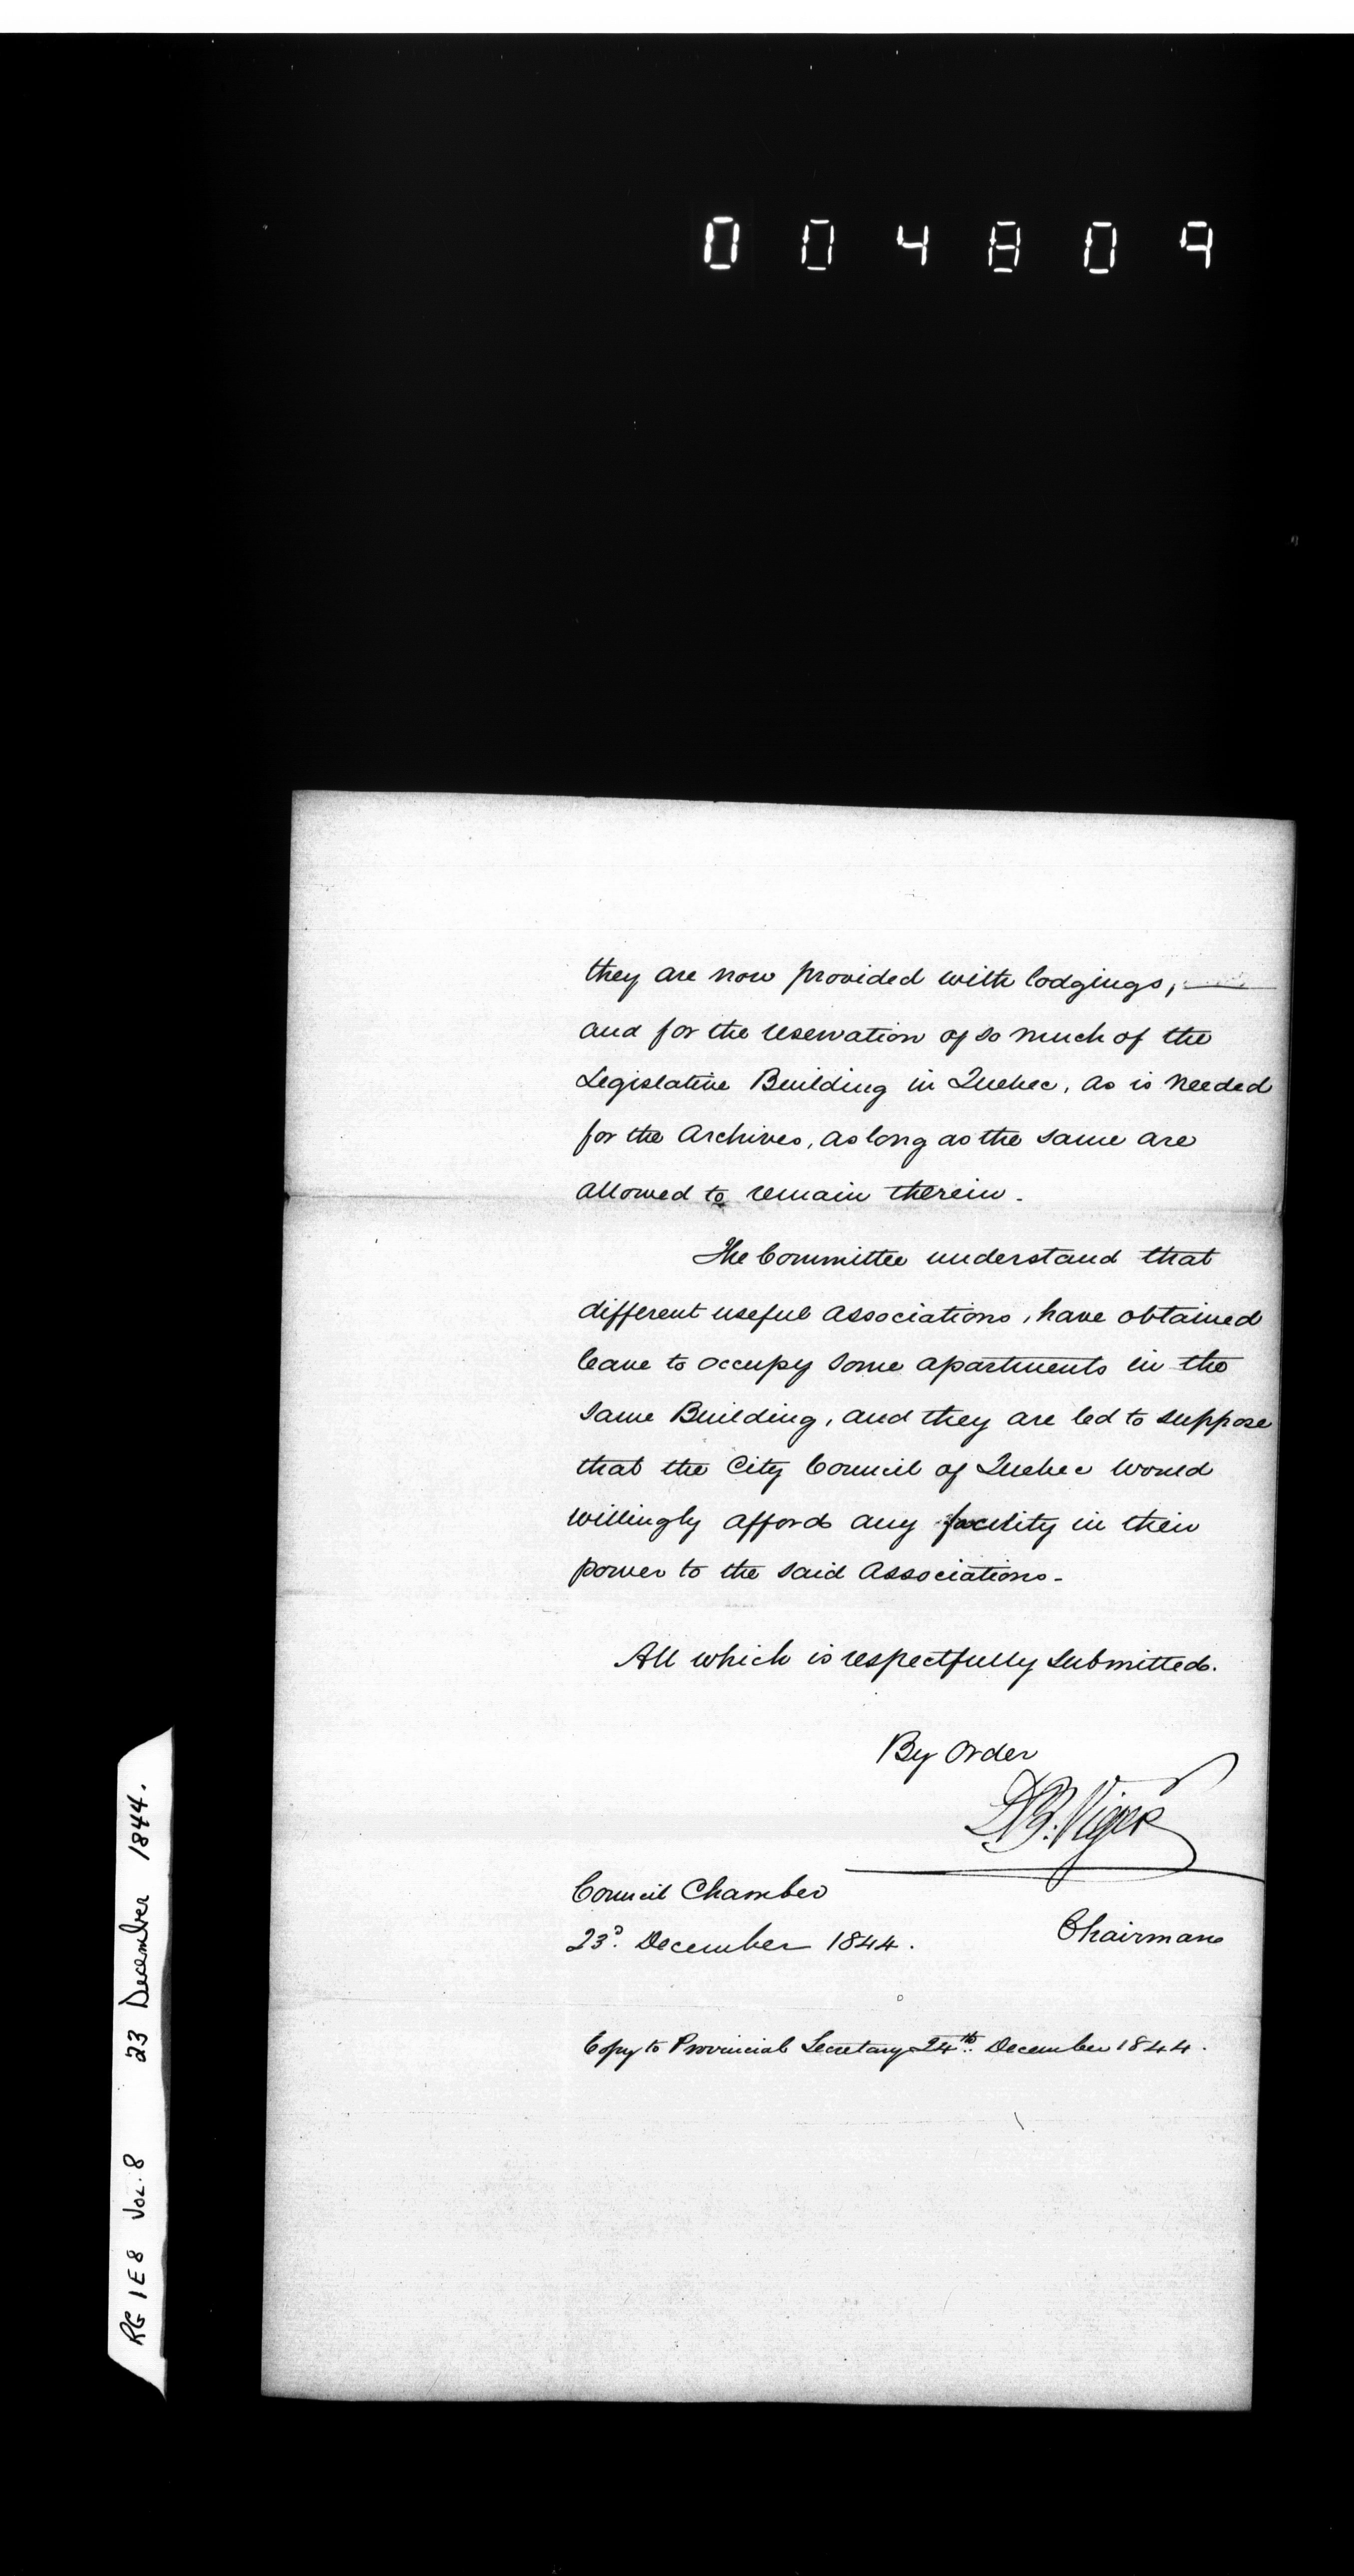 004809
they are now provided with lodgings,
and for the reservation of so much of the
Legislative Building in Quebec, as is needed
for the Archives, as long as the same are
allowed to remain therein.
The Committee understand that
different useful Associations, have obtained
leave to occupy some apartments in the
same Building, and they are led to suppose
that the City Council of Quebec would
willingly afford any facility in their
power to the said Associations.
All which is respectfully submitted.
By Order
DB. Viger
Council Chamber
23d. December 1844.
Chairman
Copy to Provincial Secretary 24th. December 1844.
RG 1E8 Vol. 8 23 December 1844.